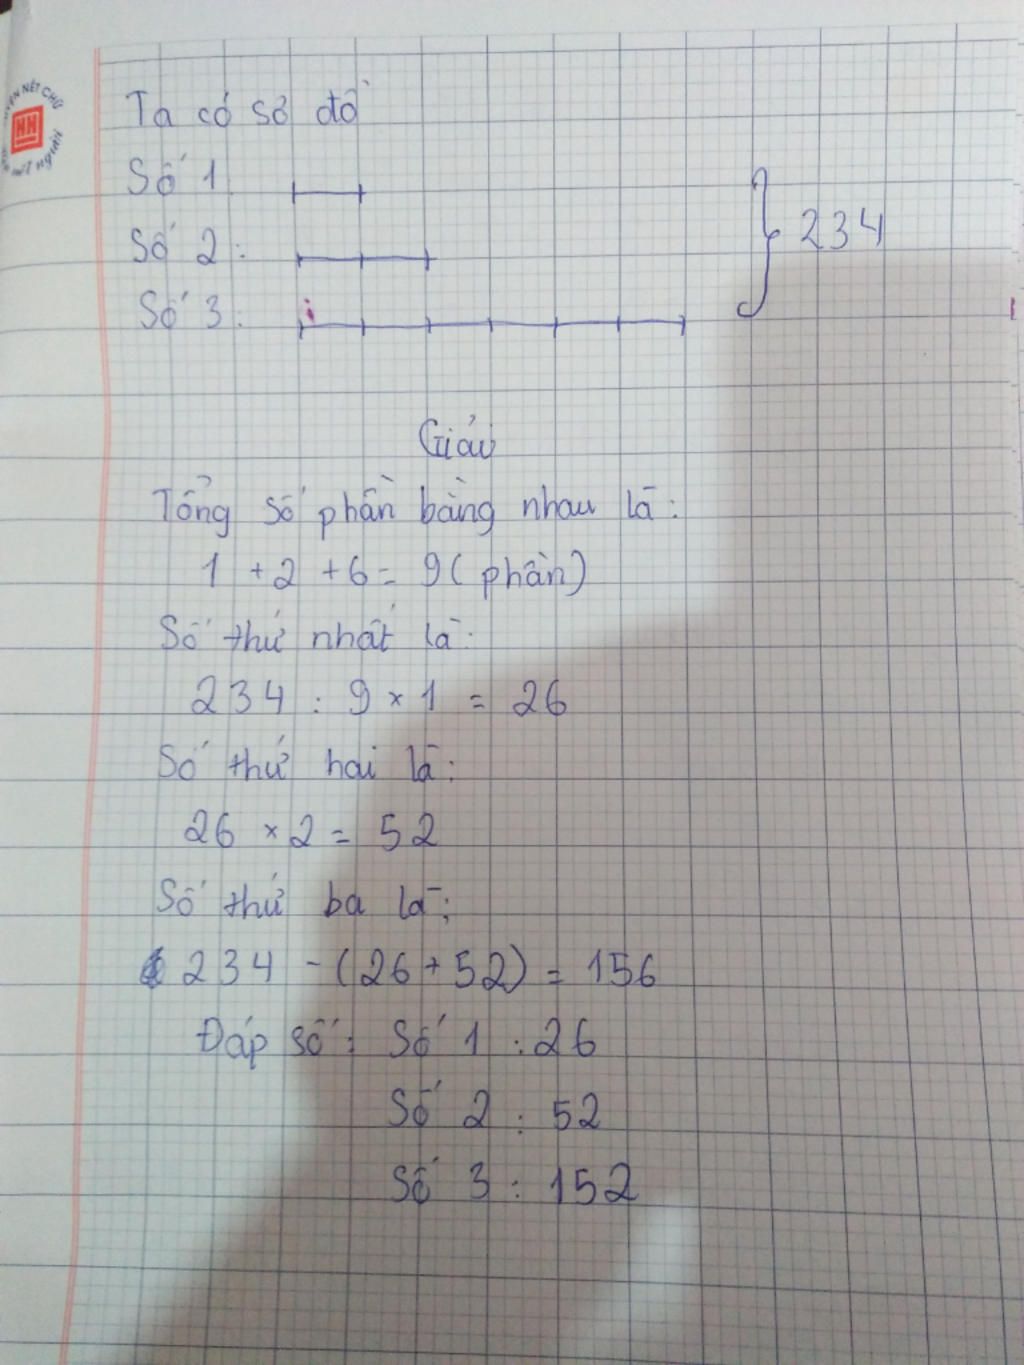 Ta có sơ đồ
Số 1
Số 2:
234
Số 3:
Giải
Tổng số phần bằng nhau là:
1 + 2 + 6 = 9 ( phần)
Số thứ nhất là:
234 : 9 × 1 = 26
Số thứ hai là:
26 × 2 = 52
Số thứ ba là:
234 - (26 + 52) = 156
Đáp số: Số 1 : 26
Số 2 : 52
Số 3 : 152